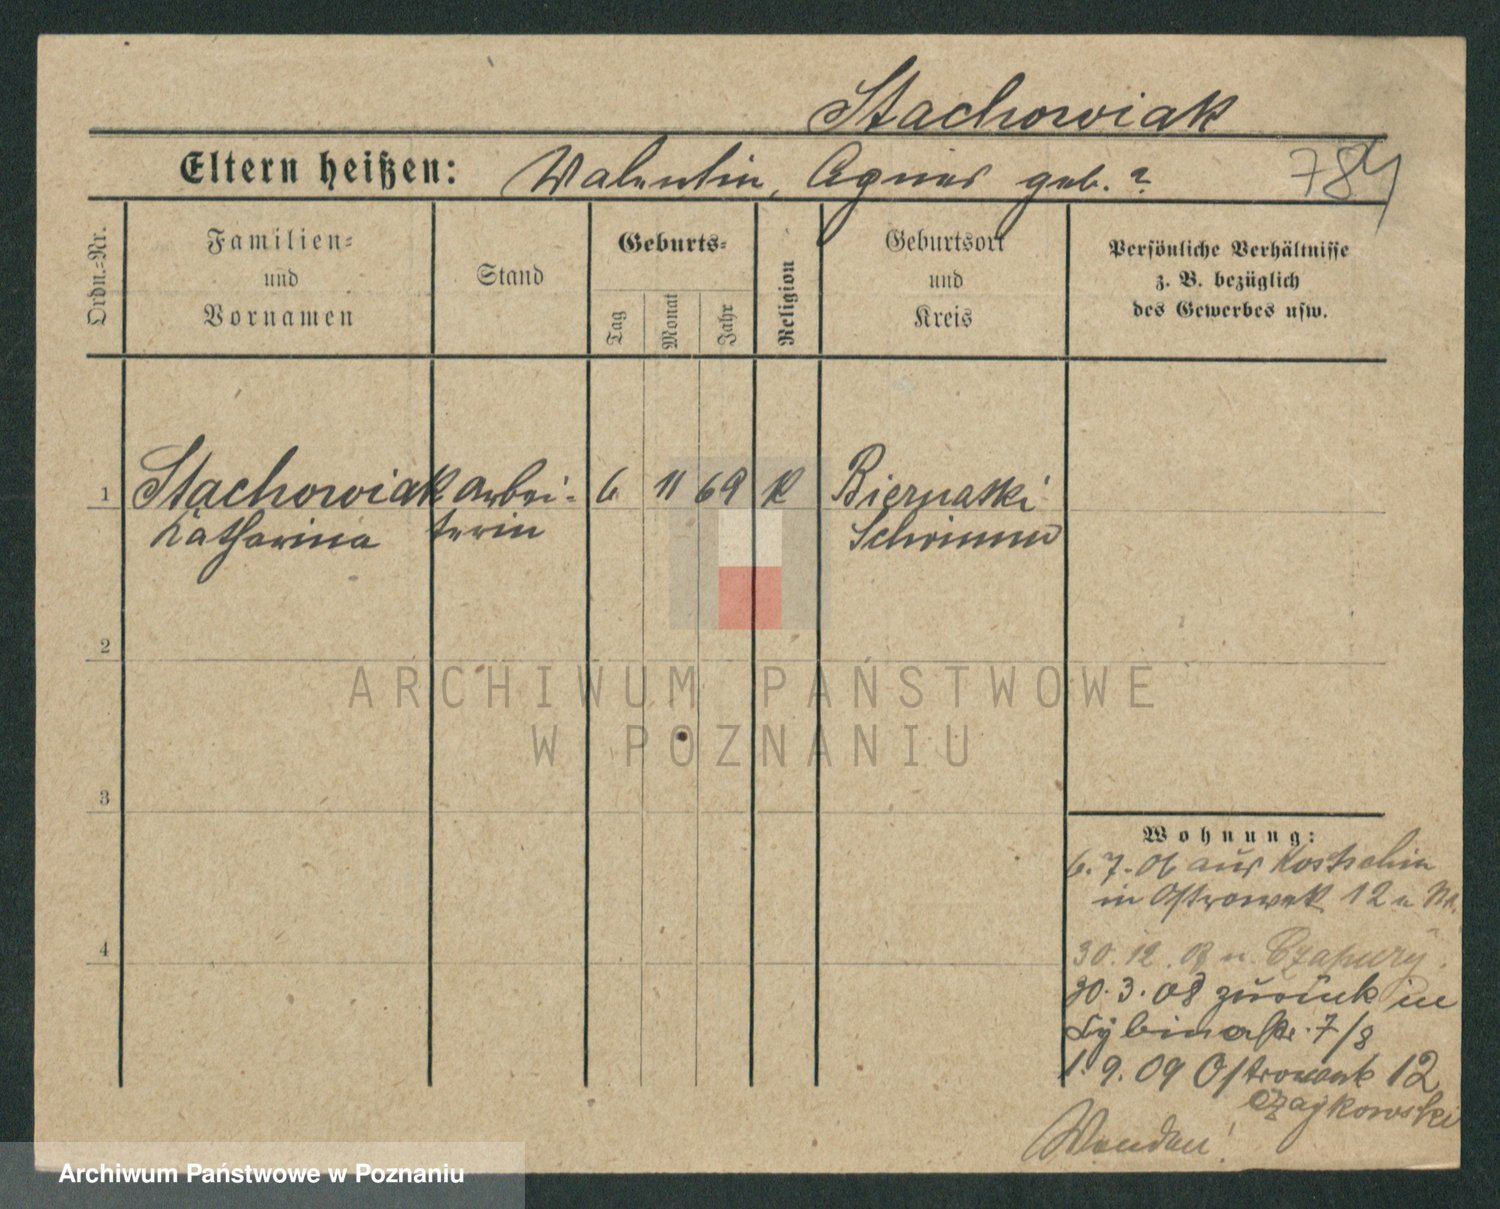 Stachowiak
Eltern heißen: Valentin, Agnes geb. ?
784
Ordn.-Nr.
Familien-
und
Vornamen
Stand
Geburts-
Tag
Monat
Jahr
Religion
Geburtsort
und
Kreis
Persönliche Verhältnisse
z. B. bezüglich
des Gewerbes usw.
1 Stachowiak Arbei- 6 11 69 K Biernatki
Katharina terin Schrimm
2
3
4
Wohnung:
6.7.06 aus Kostschin
in Ostrowek 12
30.12.07 n. Czapury.
30.3.08 zurück in
Cybinastr. 7/8
1.9.09 Ostrowek 12
Czajkowski
Wenden!
ARCHIWUM PAŃSTWOWE
W POZNANIU
Archiwum Państwowe w Poznaniu